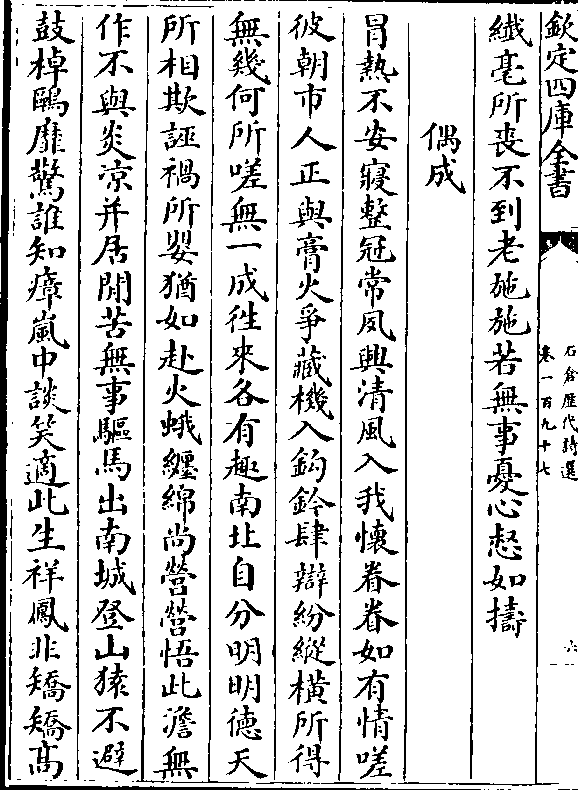 欽定四庫全書
石倉歷代詩選
卷一百九十七
六
纎毫所喪不到老施施若無事憂心惄如擣
偶成
冐熱不安寢整冠常夙興清風入我懷眷眷如有情嗟
彼朝市人正與膏火爭藏機入鈎鈐肆辯紛縱横所得
無幾何所嗟無一成徃來各有趣南北自分明明德天
所相欺誣禍所嬰猶如赴火蛾纒綿尚營營悟此澹無
作不與炎凉并居閒苦無事驅馬出南城登山猿不避
鼓棹鷗靡驚誰知瘴嵐中談笑適此生祥鳳非矯矯高